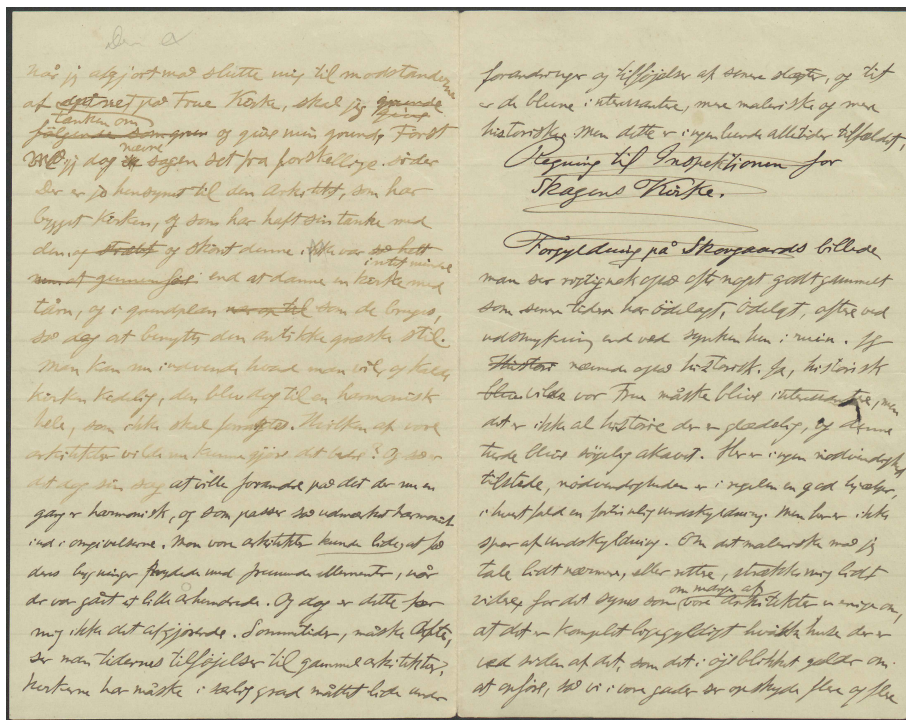 Den
Når jeg afgjort må slutte mig til modstanderne
af spiret på Frue Kirke, skal jeg grunde
tanken om give
følgende som grun og give min grund. Først
nævne
må jeg dog sagen set fra forskellige sider
Der er jo hensynet til den arkitekt, som har
bygget kirken, og som har haft sin tanke med
den, og og skönt denne ikke var så helt
intet mindre
end at danne en kirke med
tårn, og i grundplan som de bruges,
så dog at benytte den antikke græske stil.
Man kan nu indvende hvad man vil, og kalde
kirken kedelig, den blev dog til en harmonisk
hele, som ikke skal Hvilken af vore
arkitekter vilde nu kunne gjøre det bedre? Og så er
det dog sin sag at ville forandre på det der nu en
gang er harmonisk, og som passer så udmærket harmonisk
ind i omgivelserne. Mon vore arkitekter kunde lide, at få
deres bygninger prydede med fremmede ellementer, når
der var gået et lille århundrede. Og dog er dette for
mig ikke det afgjørende. Sommetider, måske ofte,
ser man tidernes tilføjelser til gammel arkitektur,
kirkerne har måske i særlig grad måttet lide under
forandringer og tilföjelser af senere slægter, og tit
er de blevne interessantere, mere maleriske og mere
historiske. Men dette er ingenlunde alletider tilfældet,
Regning til Inspektionen for
Skagens Kirke.
Forgyldning på Skovgaards billede
man ser rigtignok også ofte noget godt gammelt
som senere tider har ödelagt, ödelagt, oftere ved
udsmykning end ved synken hen i ruin. Jeg
Histori nævnede også historisk. Ja, historisk
blive vilde vor Frue måske blive interessantere, men
det er ikke al historie der er glædelig, og denne
turde blive sögelig akavet. Her er ingen nödvendighed
tilstede, nödvendigheden er i regelen en god hjælper,
i hvert fald en fortrinlig undskyldning. Men her er ikke
spor af undskyldning. Om det maleriske må jeg
tale lidt nærmere, eller rettere, strække mig lidt
om mange af
videre for det synes som vore arkitekter er enige om,
at det er komplet ligegyldigt hvilke huse der er
ved siden af det, som det i öjeblikket gælder om
at opföre, så vi i vore gader ser opskyde flere og flere